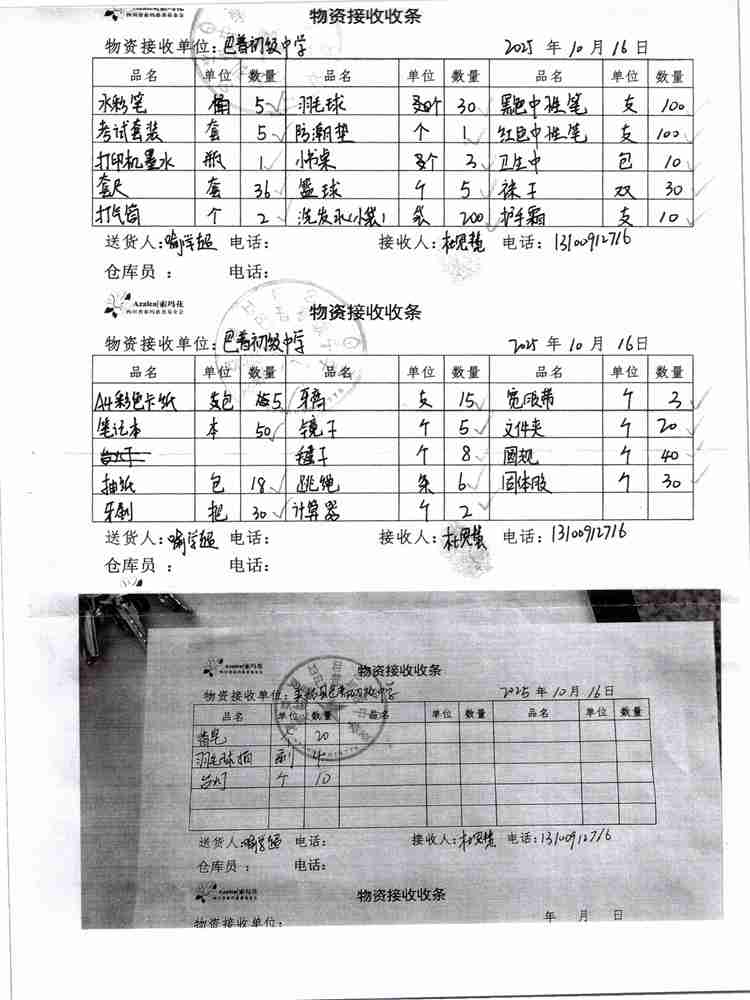 物资接收收条
物资接收单位：巴普初级中学 2025 年 10 月 16 日
品名 单位 数量 品名 单位 数量 品名 单位 数量
水彩笔 5 羽毛球 个 30 黑色中性笔 支 100
考试套装 套 5 防潮垫 个 1 红色中性笔 支 100
打印机墨水 瓶 1 小书桌 个 3 卫生巾 包 10
套尺 套 36 篮球 个 5 袜子 双 30
打气筒 个 2 洗发水(小袋) 袋 200 护手霜 支 10
送货人： 电话： 接收人： 电话：13100912716
仓库员 ： 电话：
Azalea|索玛花
物资接收收条
物资接收单位：巴普初级中学 2025 年 10 月 16 日
品名 单位 数量 品名 单位 数量 品名 单位 数量
A4彩色卡纸 包 5 牙膏 支 15 宽胶带 个 3
笔记本 本 50 镜子 个 5 文件夹 个 20
台灯 毽子 个 8 圆规 个 40
抽纸 包 18 跳绳 条 6 固体胶 个 30
牙刷 把 30 计算器 个 2
送货人： 电话： 接收人： 电话：13100912716
仓库员 ： 电话：
Azalea|索玛花
物资接收收条
物资接收单位：美姑县巴普初级中学 2025 年 10 月 16 日
品名 单位 数量 品名 单位 数量 品名 单位 数量
香皂 20
羽毛球拍 副 4
台灯 个 10
送货人： 电话： 接收人： 电话：13100912716
仓库员 ： 电话：
Azalea|索玛花
物资接收收条
物资接收单位： 年 月 日